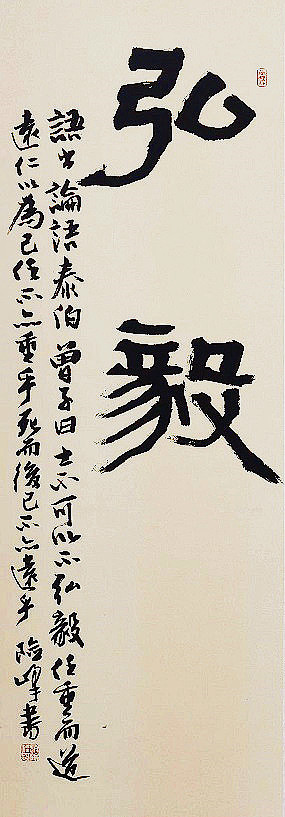 弘毅
語出論語泰伯曾子曰士不可以不弘毅任重而道
遠仁以為己任不亦重乎死而後已不亦遠乎 險峰書